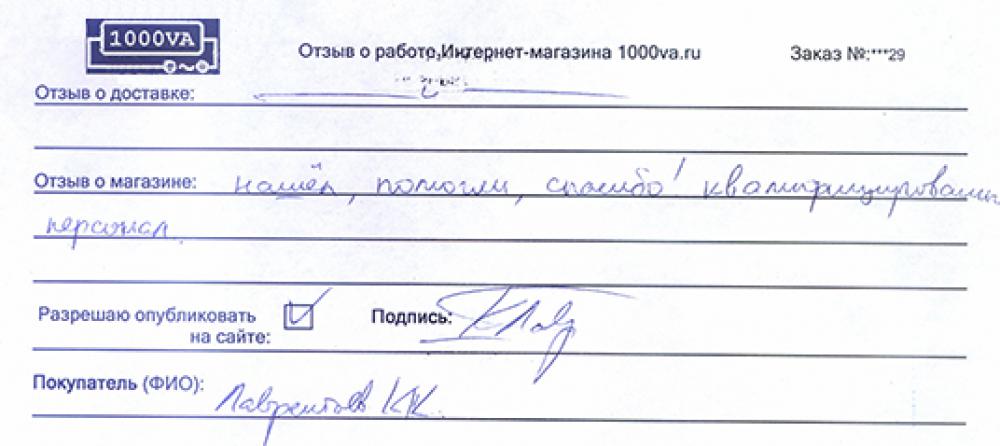 1000VA
Отзыв о работе,Интернет-магазина 1000va.ru
Заказ №:***29
Отзыв о доставке:
Отзыв о магазине: нашёл, помогли, спасибо! квалифицированный
персонал.
Разрешаю опубликовать
на сайте:
Подпись: КЛавр
Покупатель (ФИО): Лаврентьев КК.